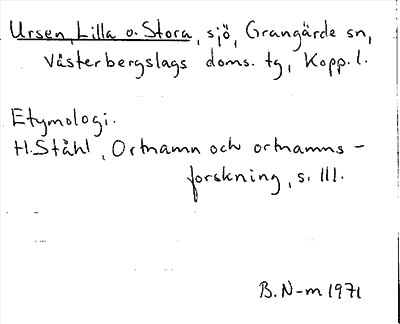 Ursen, Lilla o. Stora, sjö, Grangärde sn,
Västerbergslags doms. tg, Kopp. l.
Etymologi.
H. Ståhl, Ortnamn och ortnamns-
forskning, s. 111.
B. N-m 1971